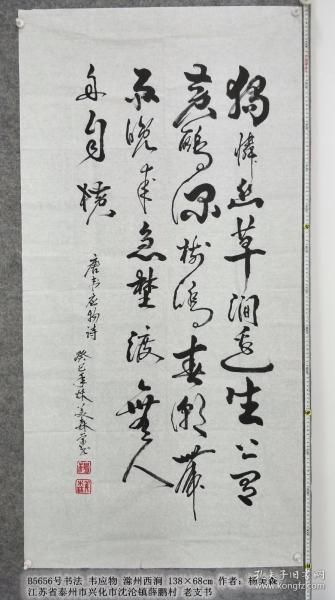 獨憐幽草澗边生上有
黄鸝深樹鳴春潮帶
雨晚來急野渡無人
舟自横
唐韦应物诗
癸巳年秋美森
B5656号书法 韦应物 滁州西涧 138×68cm 作者：杨美森
江苏省泰州市兴化市沈沦镇薛鹏村 老支书